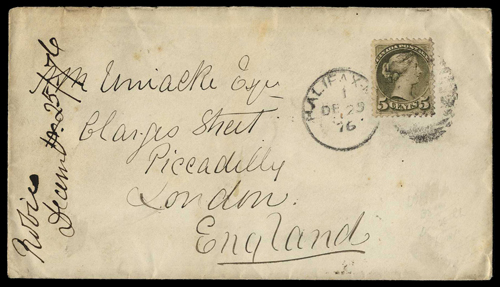 Uniacke Esqr
Clarges Street
Piccadilly
London.
England
Robie
December 25/76
HALIFAX
1
DE 25
76
CANADA POSTAGE
5 CENTS 5